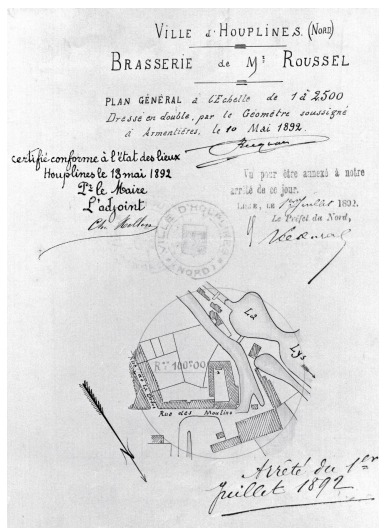 VILLE d'HOUPLINES. (NORD)
BRASSERIE de Mr ROUSSEL
PLAN GÉNÉRAL à l'Echelle de 1 à 2500
Dressé en double, par le Géomètre soussigné
à Armentières, le 10 Mai 1892.
certifié conforme à l'état des lieux
Houplines le 13 mai 1892
Pr le Maire
L'adjoint
Vu pour être annexé à notre
arrêté de ce jour.
LILLE, LE 1er Juillet 1892.
Le Préfet du Nord,
VILLE D'HOUPLINES
(NORD)
La
Lys
Rue des Moulins
Arrêté du 1er
Juillet 1892